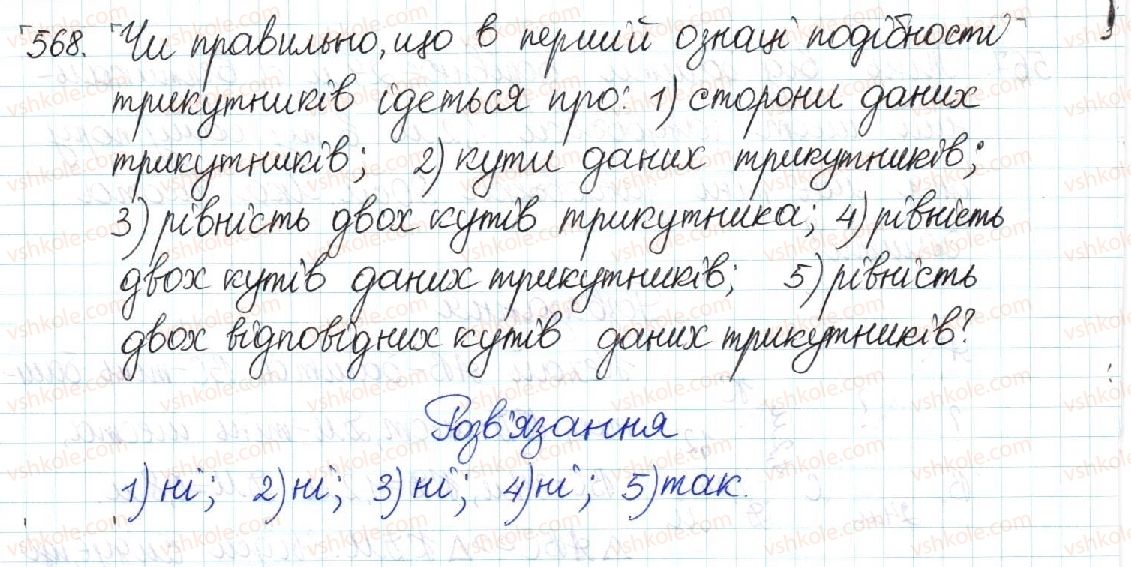 568. Чи правильно, що в першій ознаці подібності
трикутників ідеться про: 1) сторони даних
трикутників; 2) кути даних трикутників;
3) рівність двох кутів трикутника; 4) рівність
двох кутів даних трикутників; 5) рівність
двох відповідних кутів даних трикутників?
Розв'язання
1) ні; 2) ні; 3) ні; 4) ні; 5) так.